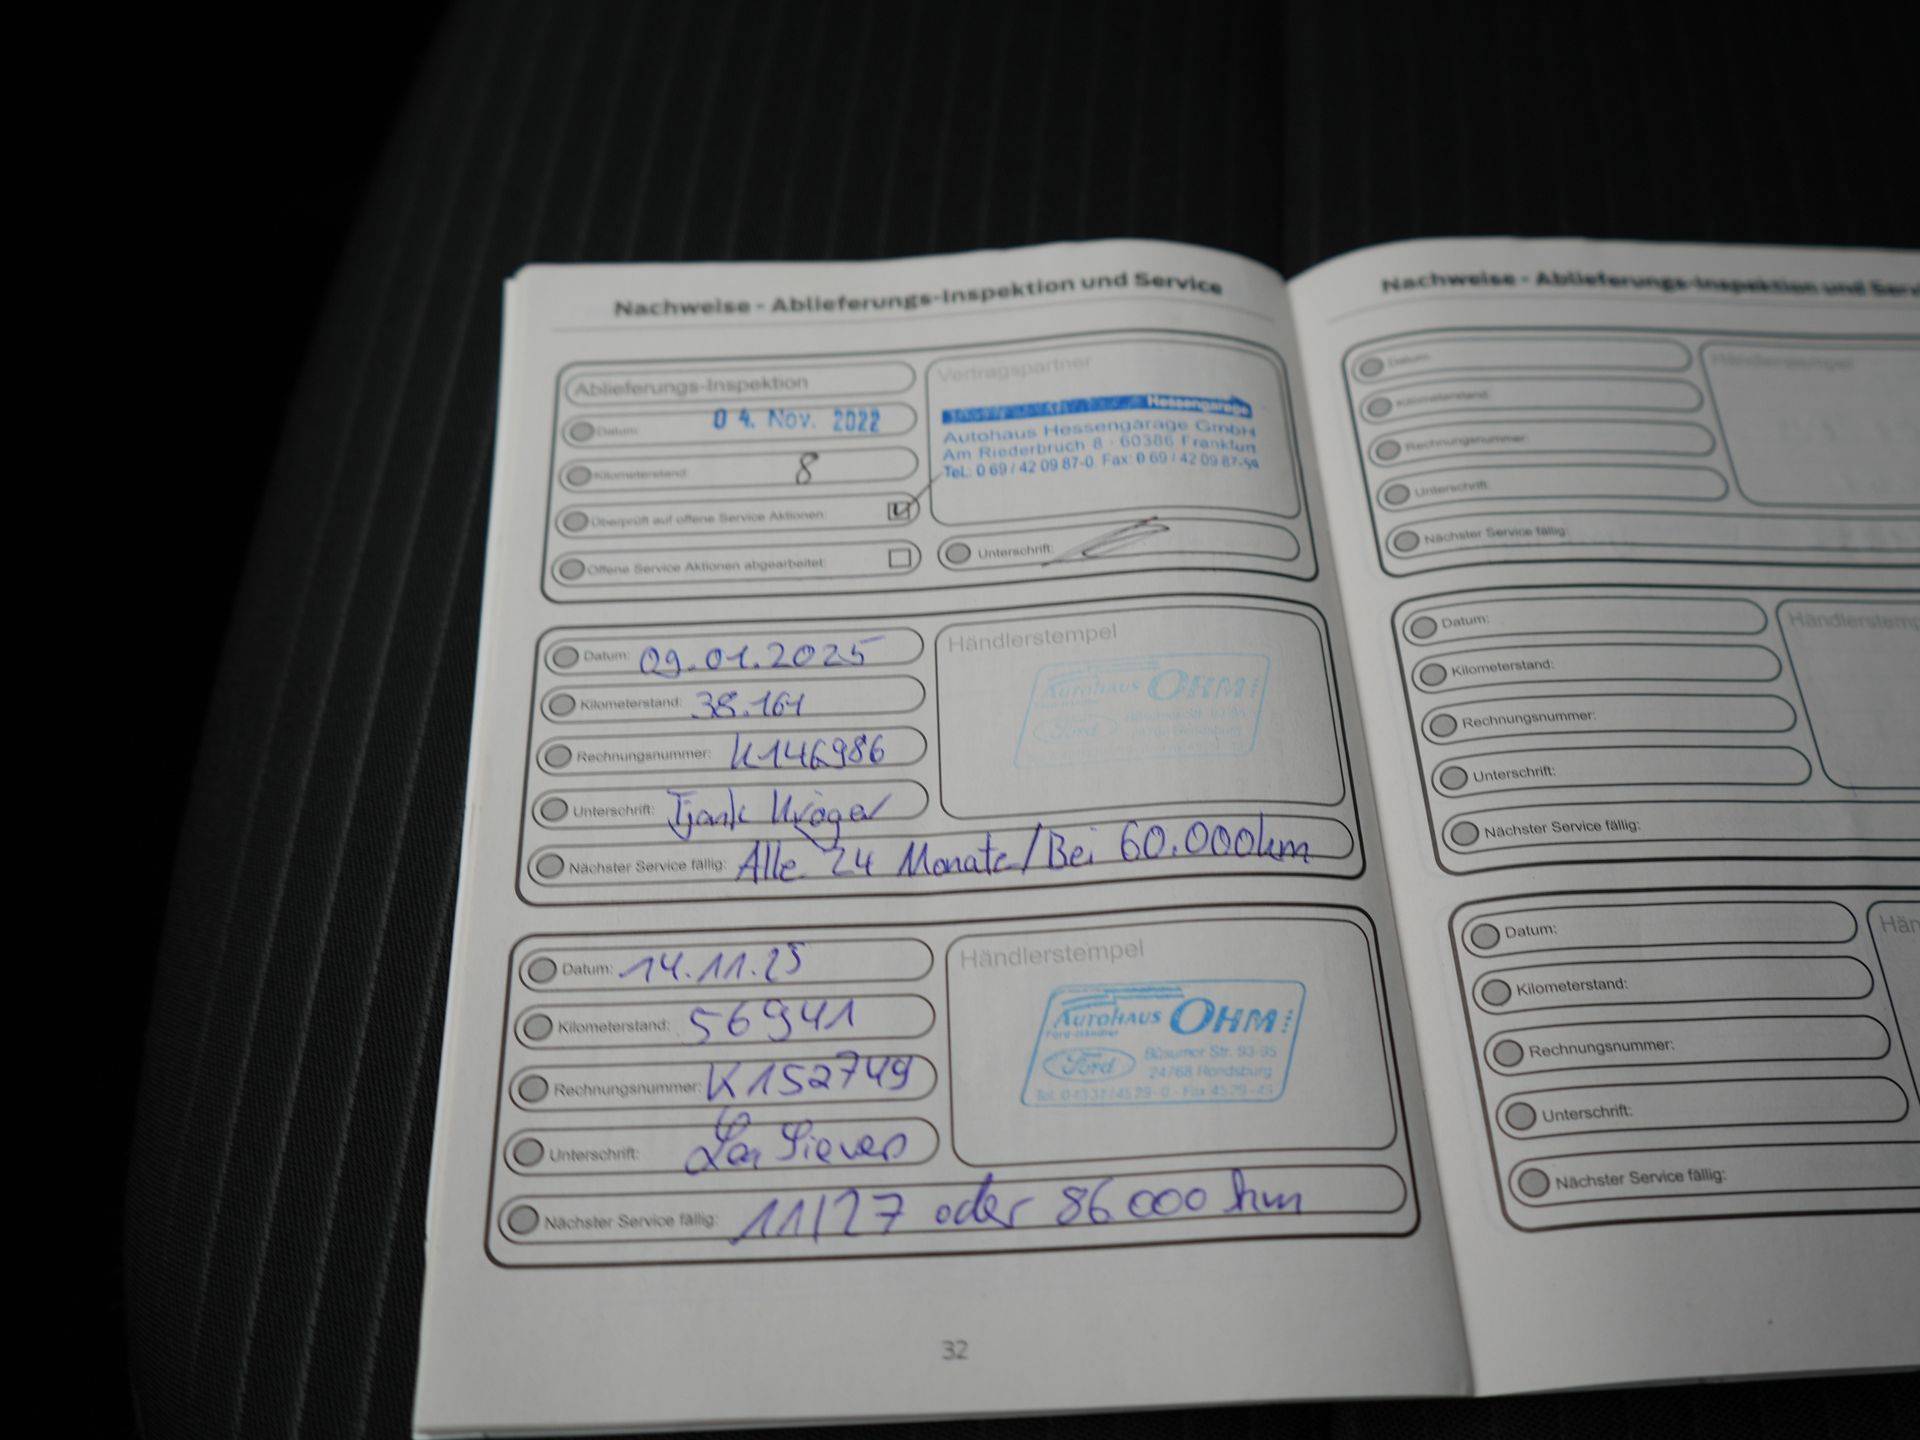 Nachweise - Ablieferungs-Inspektion und Service
Ablieferungs-Inspektion
Datum: 04. Nov. 2022
Kilometerstand: 8
Überprüft auf offene Service Aktionen:
Offene Service Aktionen abgearbeitet:
Vertragspartner
Hessengarage
Autohaus Hessengarage GmbH
Am Riederbruch 8 · 60386 Frankfurt
Tel.: 0 69 / 42 09 87-0 Fax: 0 69 / 42 09 87-54
Unterschrift:
Datum: 09.01.2025
Kilometerstand: 38.161
Rechnungsnummer: K146986
Unterschrift: Kröger
Nächster Service fällig: Alle 24 Monate/Bei 60.000km
Händlerstempel
Autohaus OHM
Ford
Datum: 14.11.25
Kilometerstand: 56941
Rechnungsnummer: K152749
Unterschrift:
Nächster Service fällig: 11/27 oder 86000 km
Händlerstempel
Autohaus OHM
Ford
Büsumer Str. 93-95
24768 Rendsburg
32
Nachweise - Ablieferungs-Inspektion und
Datum:
Kilometerstand:
Rechnungsnummer:
Unterschrift:
Nächster Service fällig:
Händlerstempel
Datum:
Kilometerstand:
Rechnungsnummer:
Unterschrift:
Nächster Service fällig:
Datum:
Kilometerstand:
Rechnungsnummer:
Unterschrift:
Nächster Service fällig: